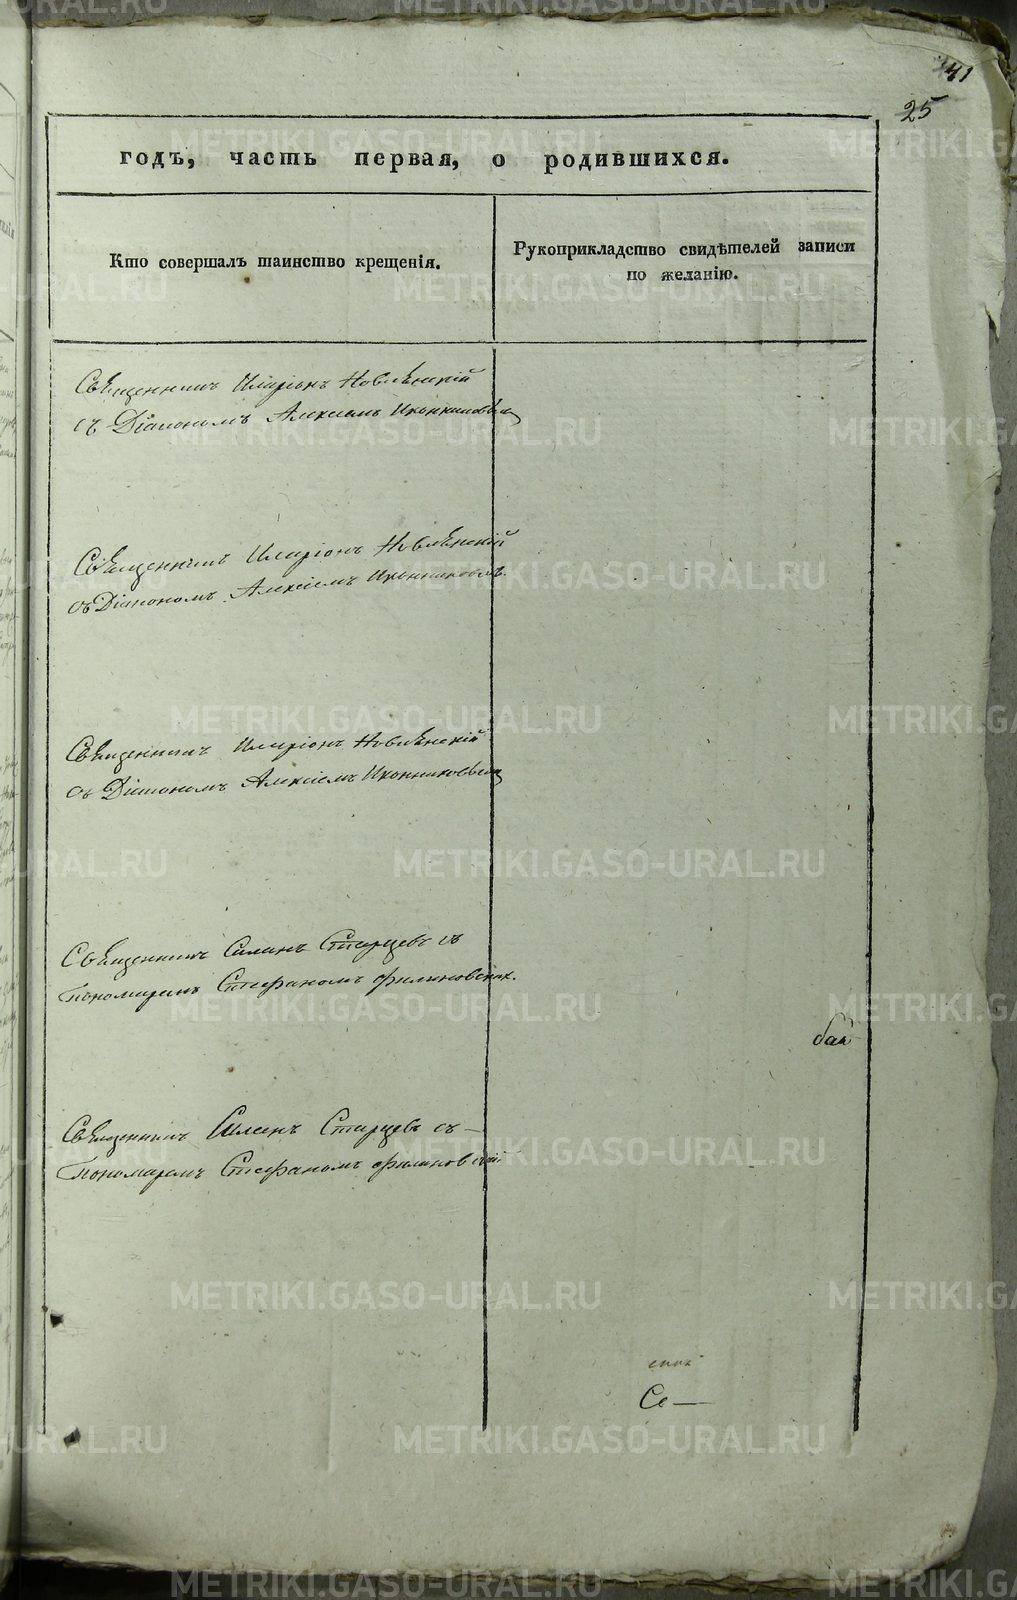 41
25
годъ, часть первая, о родившихся.
Кто совершалъ таинство крещенія.
Рукоприкладство свидѣтелей записи
по желанію.
Священникъ Иларіонъ
съ Діакономъ Алексіемъ Иконниковымъ
Священникъ Иларіонъ
съ Діакономъ Алексіемъ Иконниковымъ.
Священникъ Иларіонъ
съ Діакономъ Алексіемъ Иконниковымъ
Священникъ Симеонъ Старцевъ съ
Пономаремъ Стефаномъ
Священникъ Симеонъ Старцевъ съ
Пономаремъ Стефаномъ
Се—
METRIKI.GASO-URAL.RU